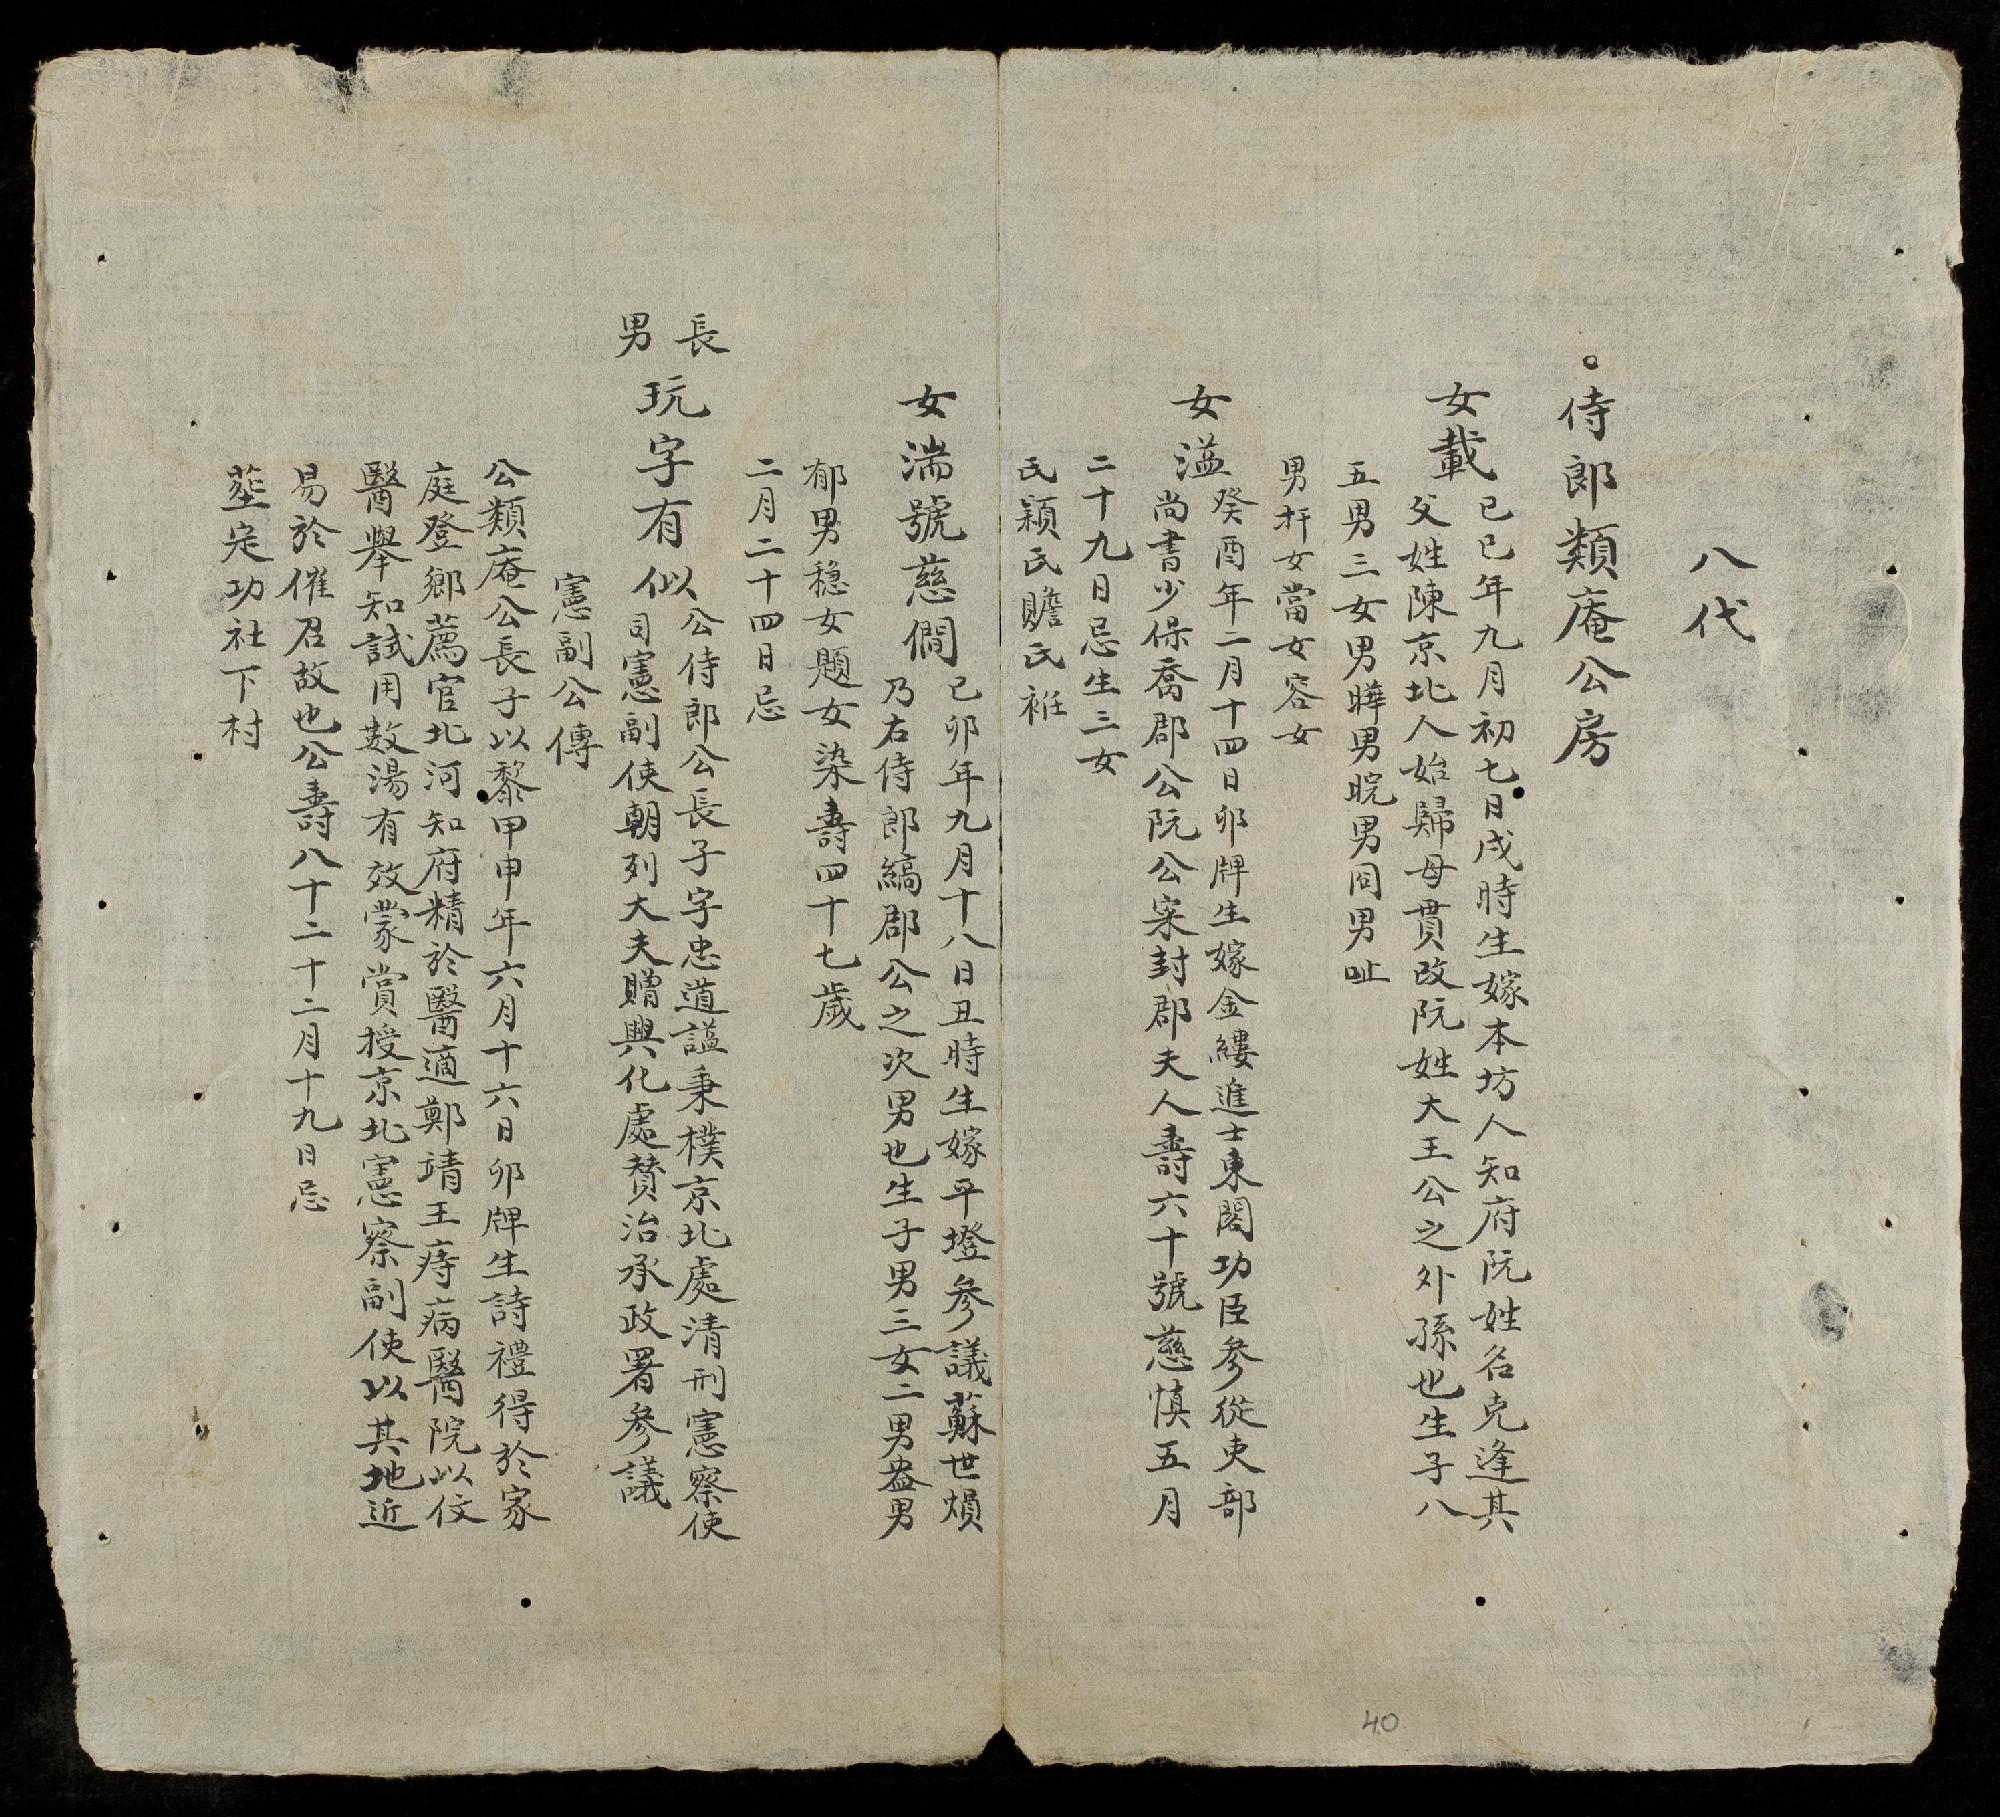 八代
。侍郎類庵公房
女載
己巳年九月初七日戌時生嫁本坊人知府阮姓名克逢其
父姓陳京北人始歸母貫改阮姓大王公之外孫也生子八
五男三女男曄男晥男囘男呲
男杆女當女容女
女溢
癸酉年二月十四日卯牌生嫁金縷進士東閣功臣參從吏部
尚書少保喬郡公阮公寀封郡夫人壽六十號慈慎五月
二十九日忌生三女
氏穎氏贍氏袵
女湍號慈僴
己卯年九月十八日丑時生嫁平墱參議蘇世熉
乃右侍郎縞郡公之次男也生子男三女二男盎男
郁男穏女題女染壽四十七歲
二月二十四日忌
長男
玩字有似
公侍郎公長子字忠道謚秉樸京北處清刑憲察使
司憲副使朝列大夫贈興化處贊治承政署參議
憲副公傳
公類庵公長子以黎甲申年六月十六日卯牌生詩禮得於家
庭登鄉薦官北河知府精於醫適鄭靖王痔病醫院以伩
醫舉知試用数湯有效蒙賞授京北憲察副使以其地近
易於催召故也公壽八十二十二月十九日忌
塟定功社下村
40